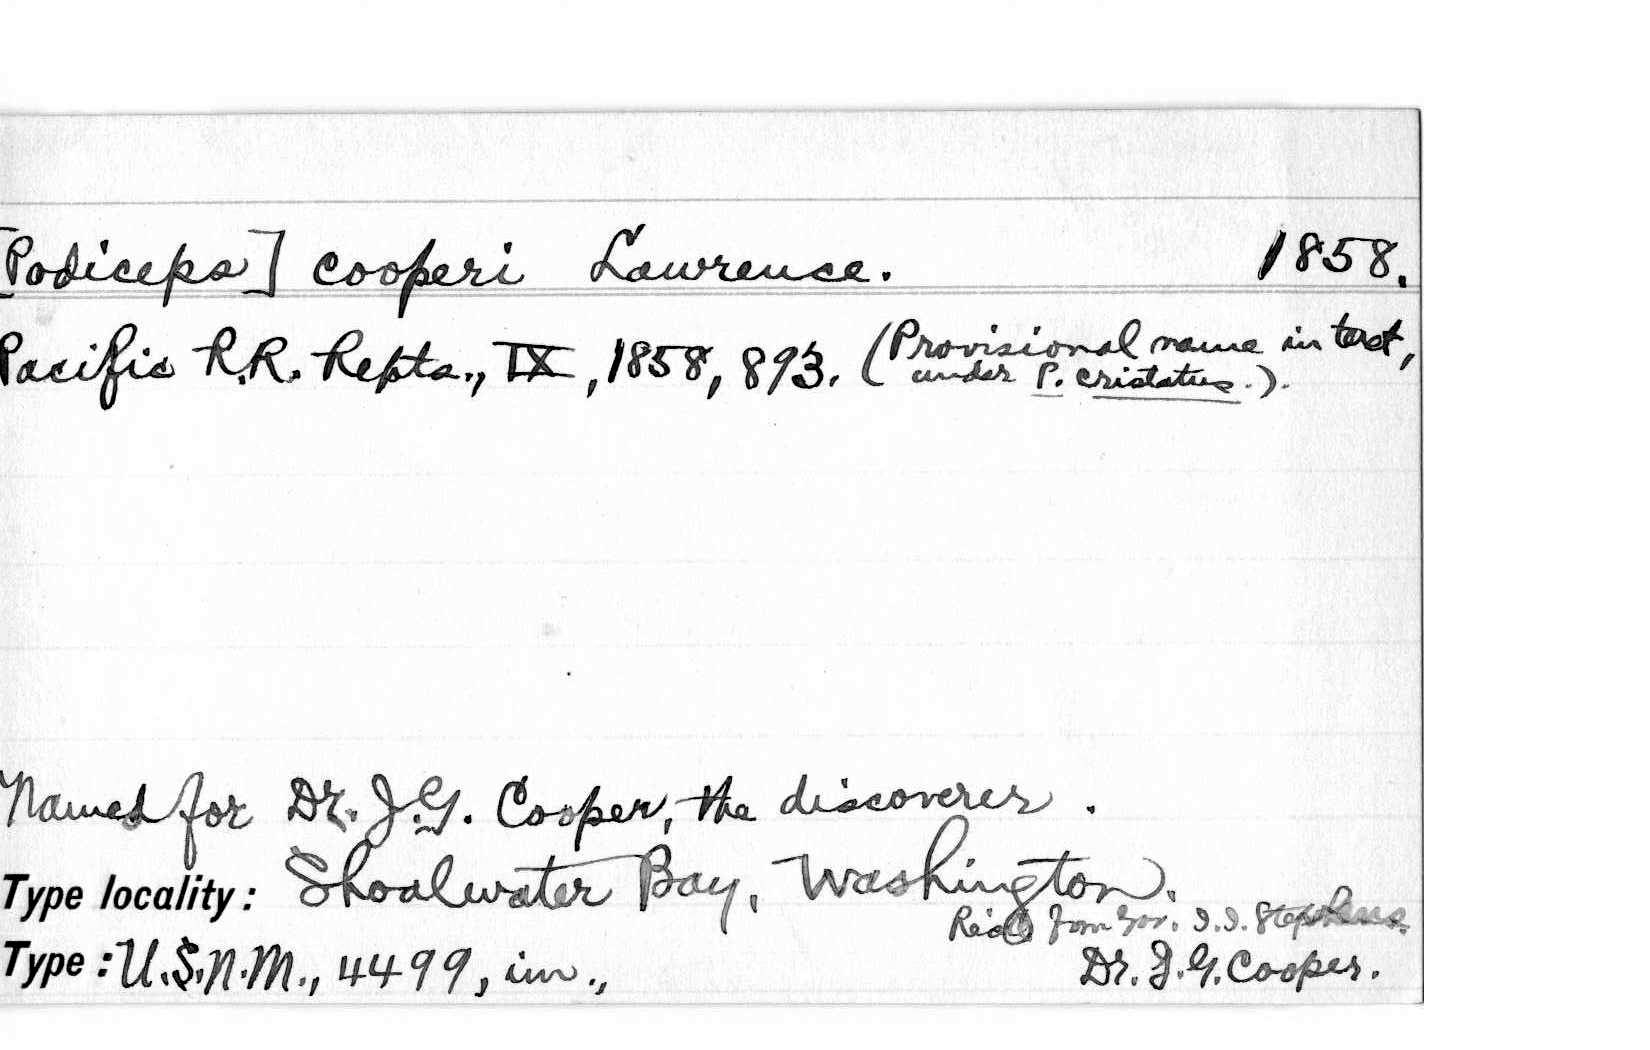 [Podiceps] cooperi Lawrence. 1858.
Pacific R.R. Repts., IX, 1858, 893. (Provisional name in text,
under P. cristatus.).
Named for Dr. J.G. Cooper, the discoverer.
Type locality: Shoalwater Bay, Washington.
from Gov. I.I. Stephens.
Type: U.S.N.M., 4499, im., Dr. J.G. Cooper.